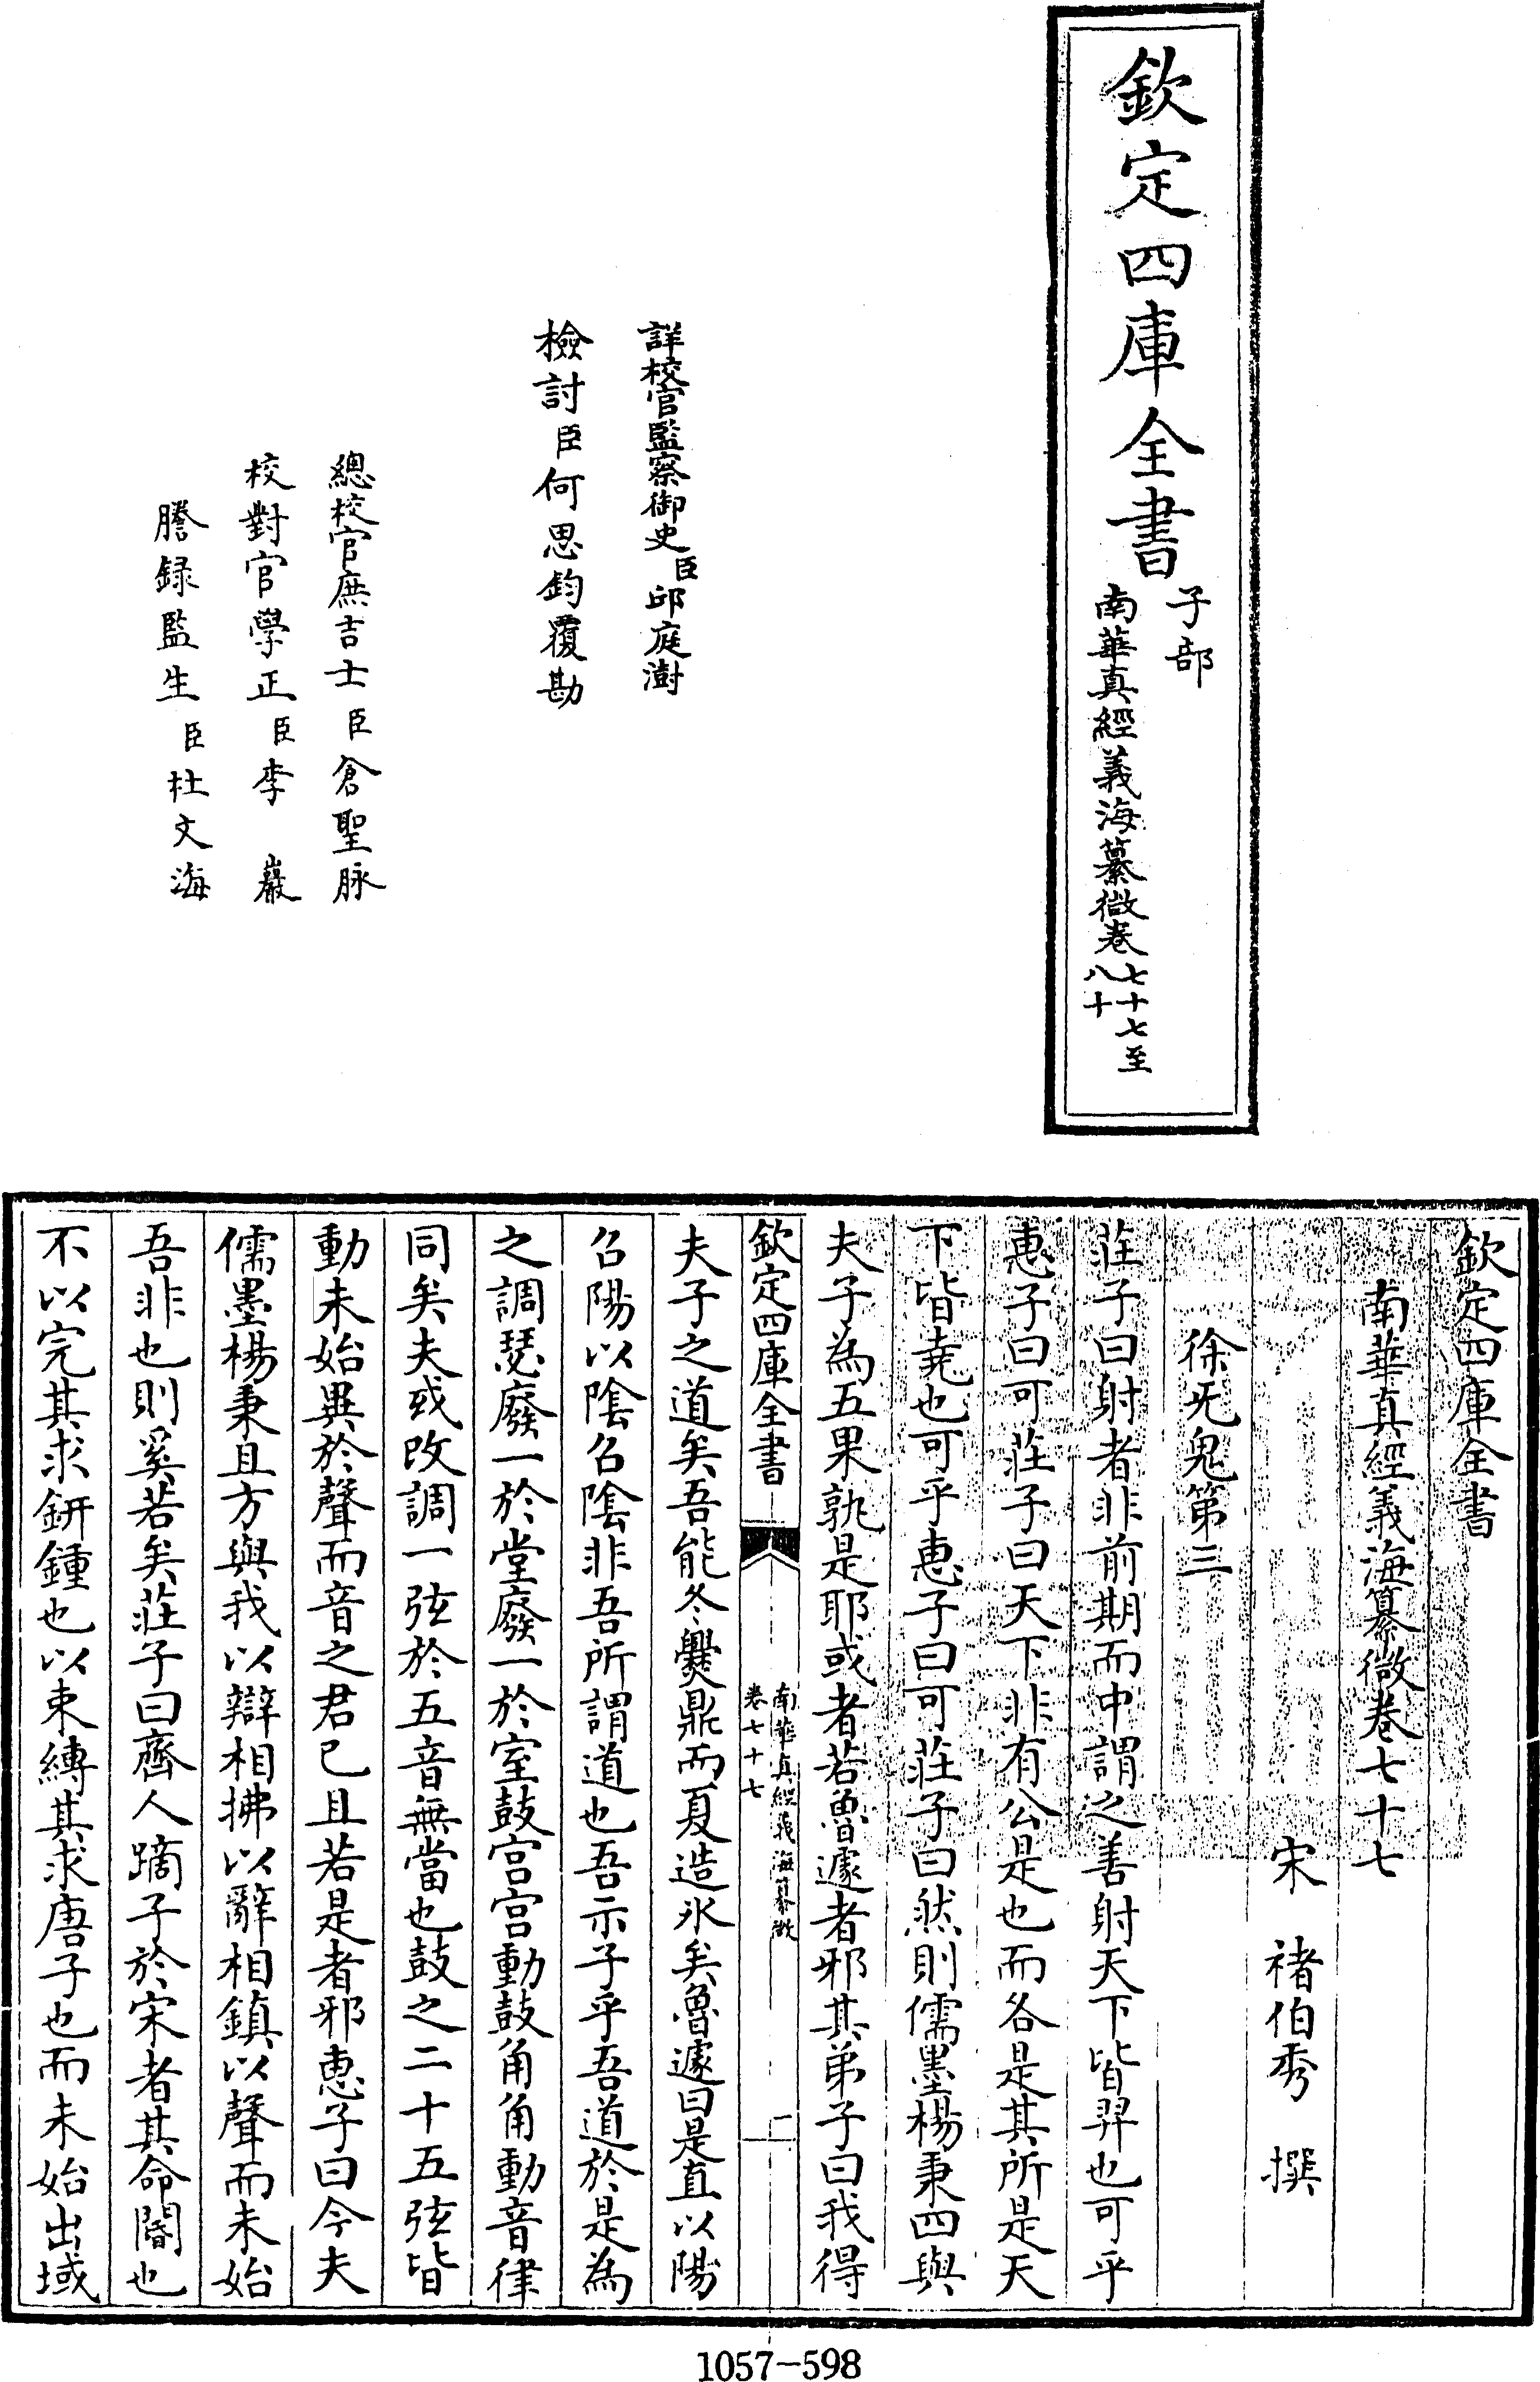 欽定四庫全書
子部
南華真經義海纂微卷七十七至八十
詳校官監察御史臣邱庭澍
檢討臣何思鈞覆勘
總校官庶吉士臣倉聖脉
校對官學正臣李巖
謄録監生臣杜文海
欽定四庫全書
南華真經義海纂微卷七十七
宋 褚伯秀 撰
徐无鬼第三
莊子曰射者非前期而中謂之善射天下皆羿也可乎
惠子曰可莊子曰天下非有公是也而各是其所是天
下皆堯也可乎惠子曰可莊子曰然則儒墨楊秉四與
夫子為五果孰是耶或者若魯遽者邪其弟子曰我得
欽定四庫全書
南華真經義海纂微
卷七十七
一
夫子之道矣吾能冬爨鼎而夏造氷矣魯遽曰是直以陽
召陽以陰召陰非吾所謂道也吾示子乎吾道於是為
之調瑟廢一於堂廢一於室鼓宫宫動鼓角角動音律
同矣夫或改調一弦於五音無當也鼓之二十五弦皆
動未始異於聲而音之君已且若是者邪惠子曰今夫
儒墨楊秉且方與我以辯相拂以辭相鎮以聲而未始
吾非也則奚若矣莊子曰齊人蹢子於宋者其命閽也
不以完其求鈃鍾也以束縳其求唐子也而未始出域
1057-598